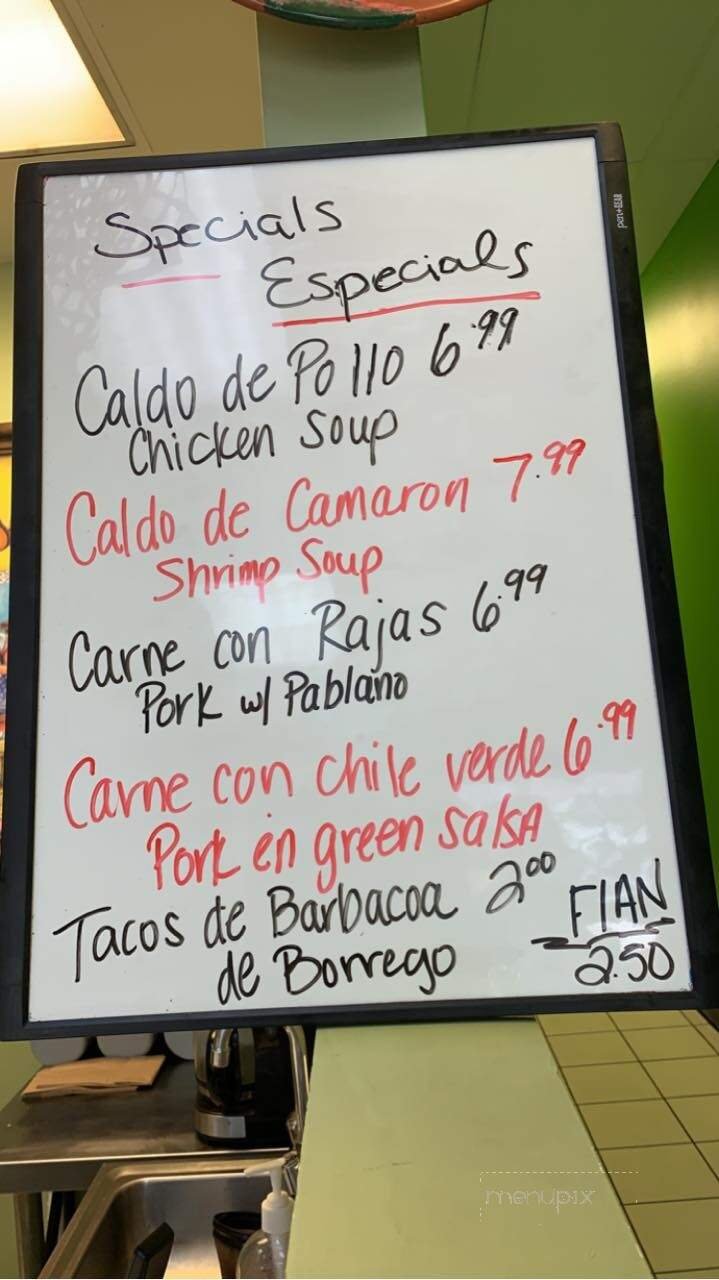 Specials
Especials
Caldo de Pollo 6.99
Chicken Soup
Caldo de Camaron 7.99
Shrimp Soup
Carne con Rajas 6.99
Pork w/ Pablano
Carne con chile verde 6.99
Pork en green salsa
Tacos de Barbacoa 2.00
de Borrego
FlAN
2.50
menupix